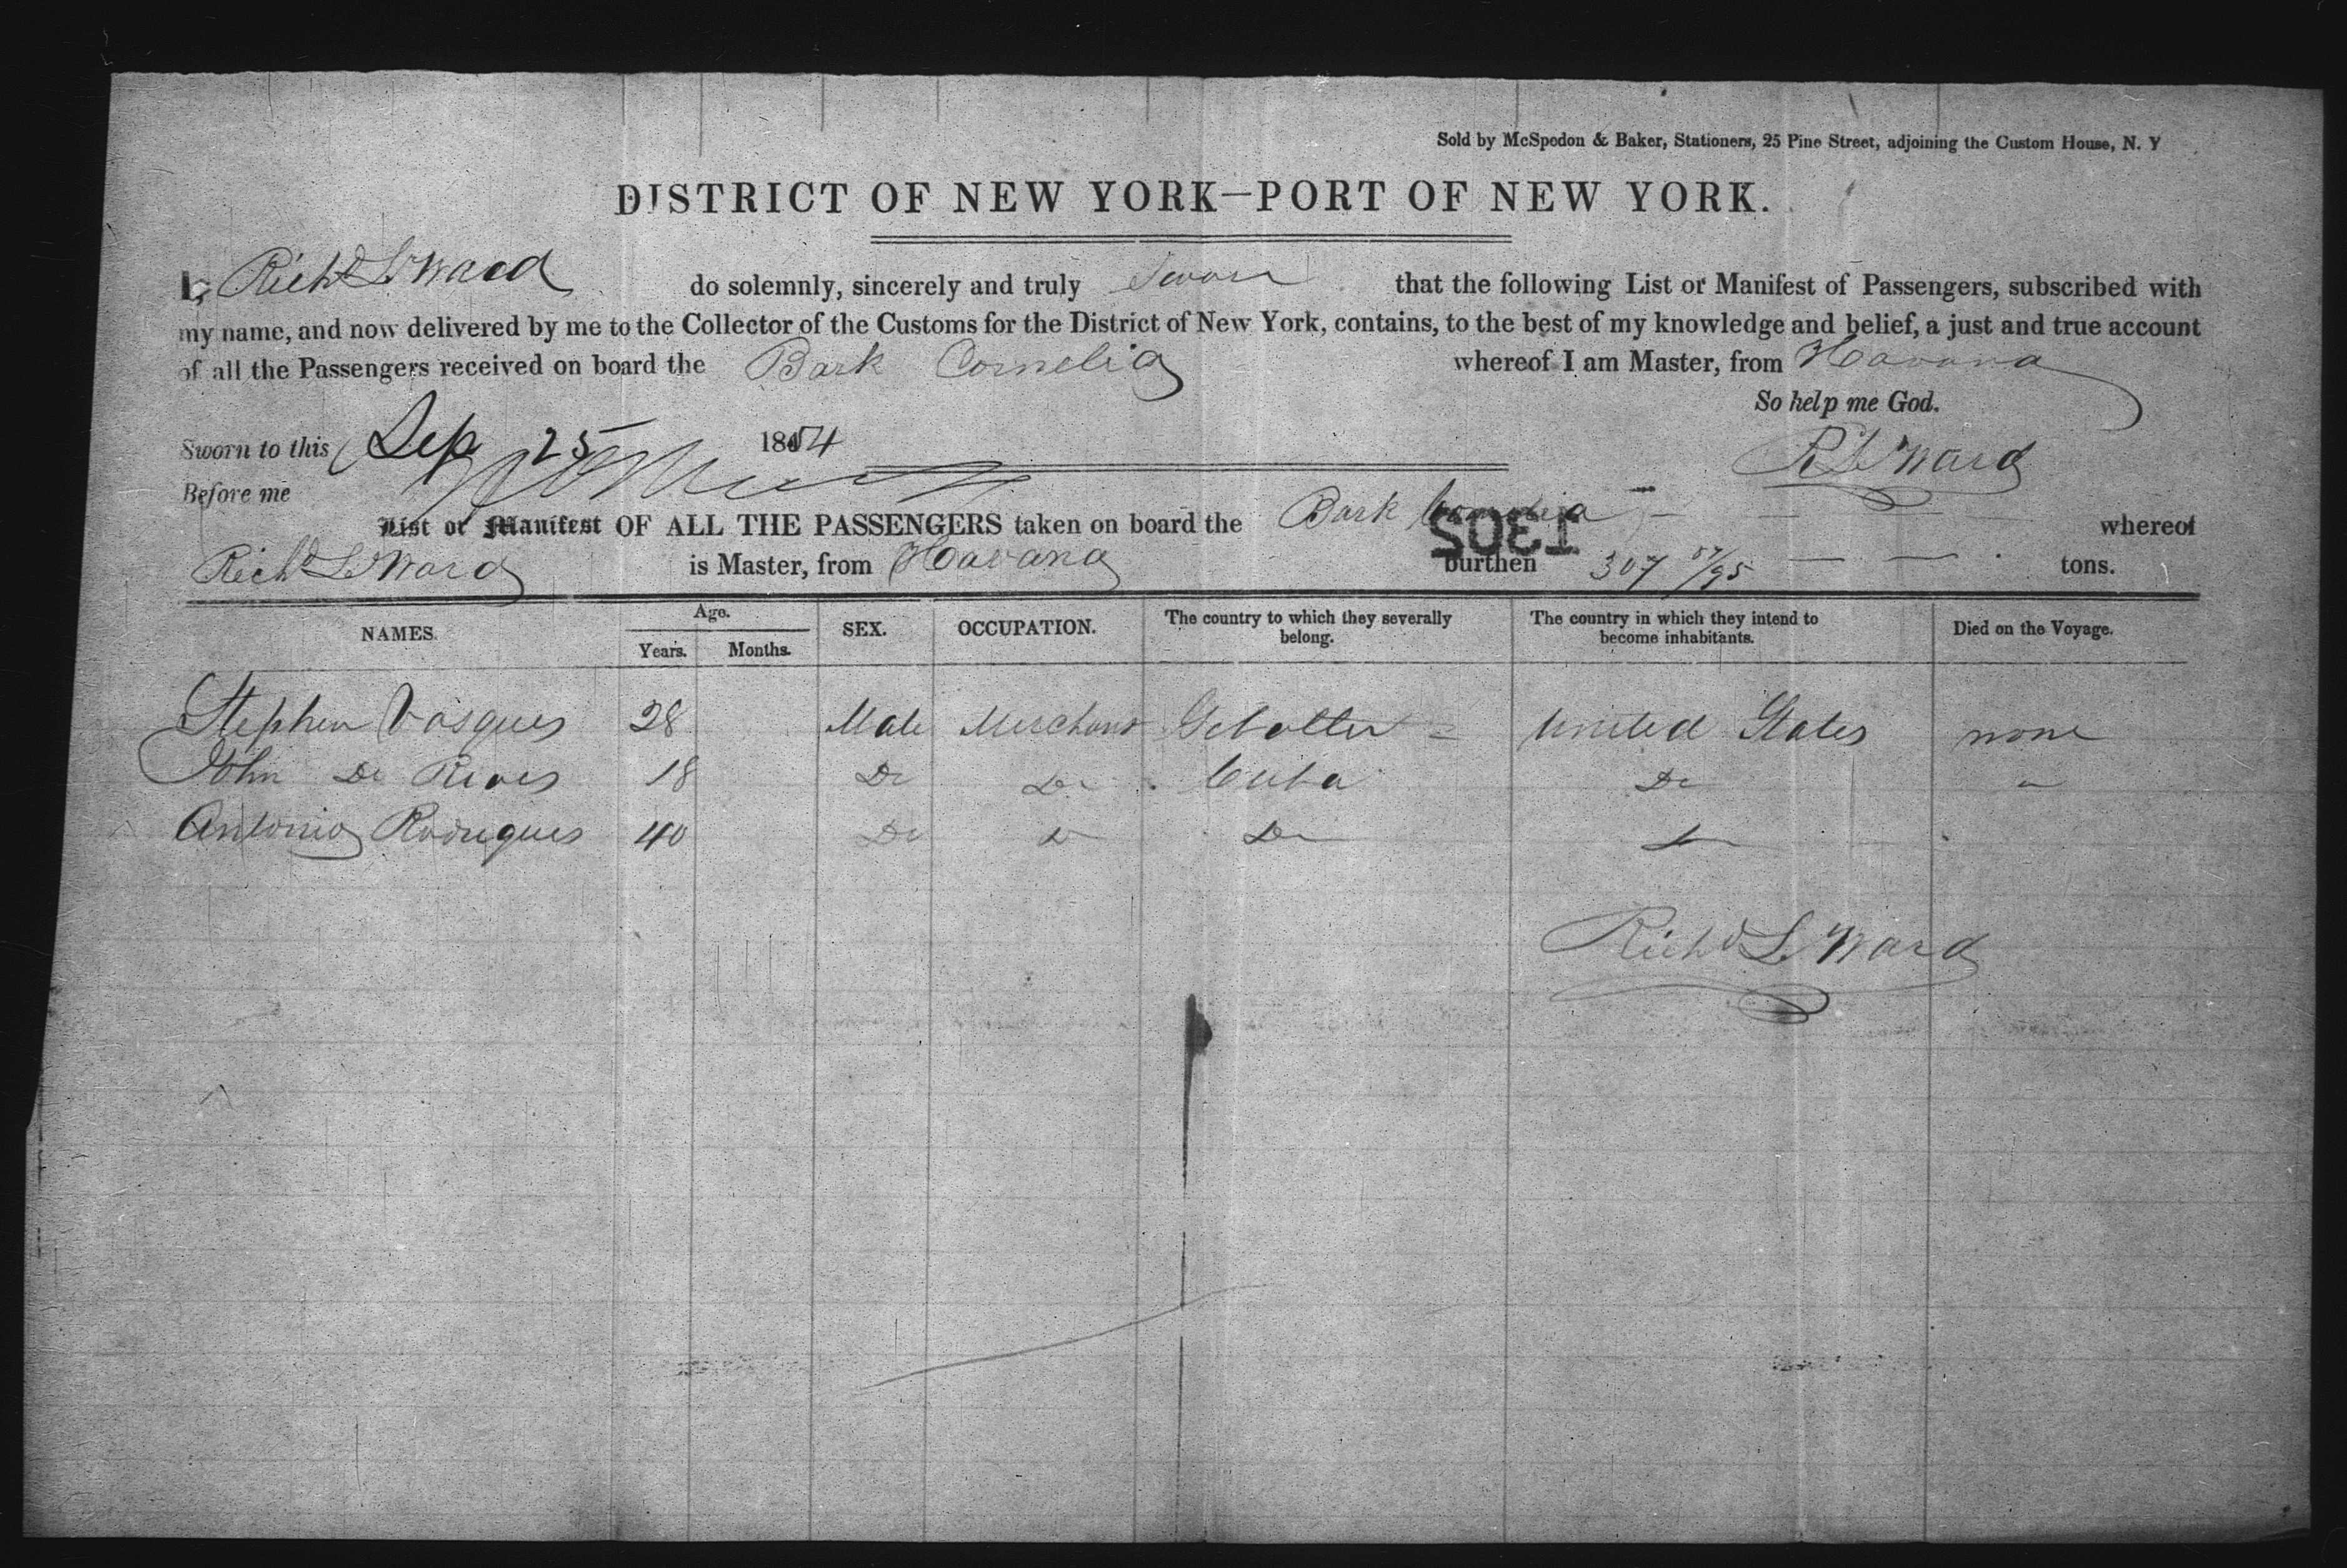 Sold by McSpedon & Baker, Stationers, 25 Pine Street, adjoining the Custom House, N. Y
DISTRICT OF NEW YORK—PORT OF NEW YORK.
I, Richd L Ward do solemnly, sincerely and truly Swear that the following List or Manifest of Passengers, subscribed with
my name, and now delivered by me to the Collector of the Customs for the District of New York, contains, to the best of my knowledge and belief, a just and true account
of all the Passengers received on board the Bark Cornelia whereof I am Master, from Havana
So help me God.
Sworn to this Sep 25 1854
R L Ward
Before me
List or Manifest OF ALL THE PASSENGERS taken on board the Bark Cornelia whereof
1302
Richd L Ward is Master, from Havana burthen 307 57/95 tons.
NAMES. Age. Years. Months. SEX. OCCUPATION. The country to which they severally belong. The country in which they intend to become inhabitants. Died on the Voyage.
Stephen Vasques 28 Male Merchant United States none
John De Rives 18 Do Do Cuba Do "
Antonio Rodriques 40 Do Do Do Do
Richd L Ward